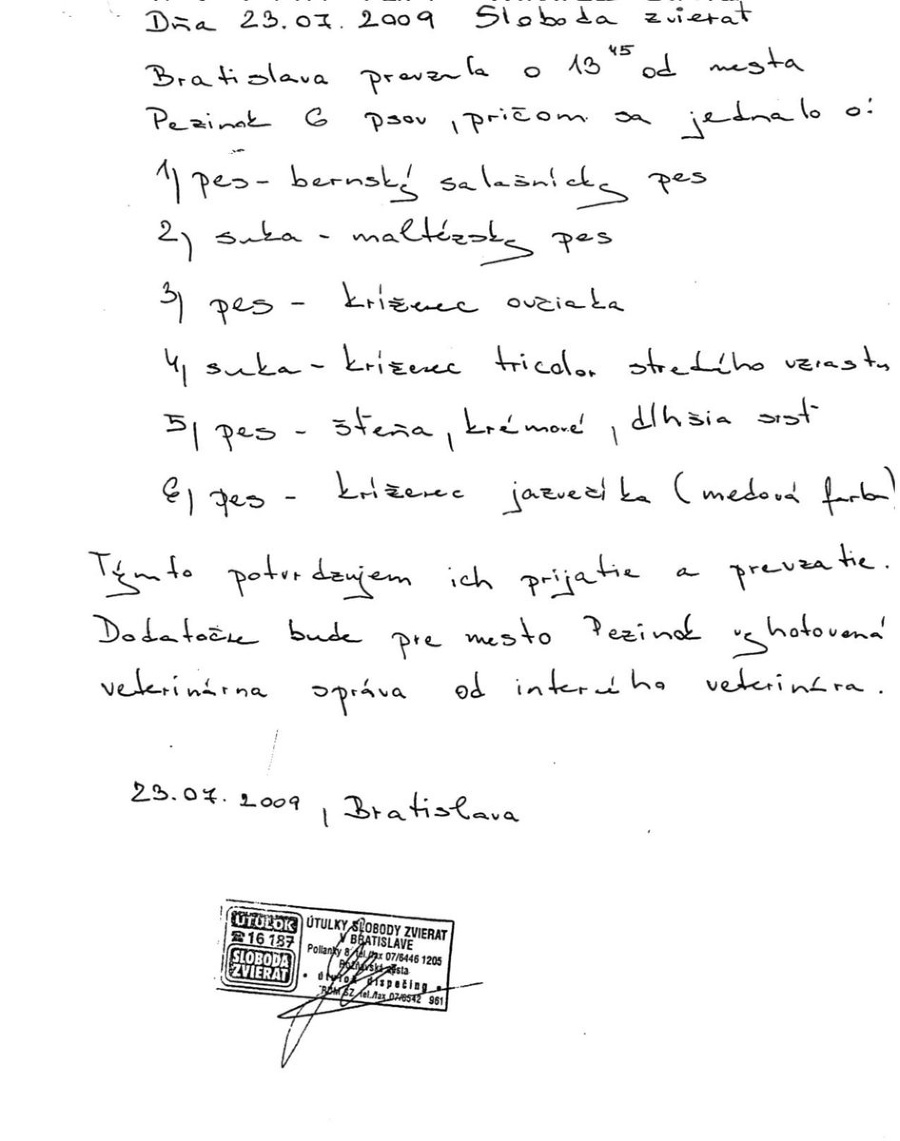 Dňa 23.07.2009 Sloboda zvierat
Bratislava prevzala o 13 45 od mesta
Pezinok 6 psov, pričom sa jednalo o:
1) pes - bernský salašnícky pes
2) suka - maltézsky pes
3) pes - kríženec ovčiaka
4) suka - kríženec tricolor stredného vzrastu
5) pes - šteňa, krémové, dlhšia srsť
6) pes - kríženec jazvečíka (medová farba)
Týmto potvrdzujem ich prijatie a prevzatie.
Dodatočne bude pre mesto Pezinok vyhotovená
veterinárna správa od interného veterinára.
23.07.2009, Bratislava
ÚTULOK
☎ 16 187
SLOBODA
ZVIERAT
ÚTULKY SLOBODY ZVIERAT
V BRATISLAVE
Polianky 8, tel./fax 07/6446 1205
cesta
dispečing
tel./fax 07/6542 961